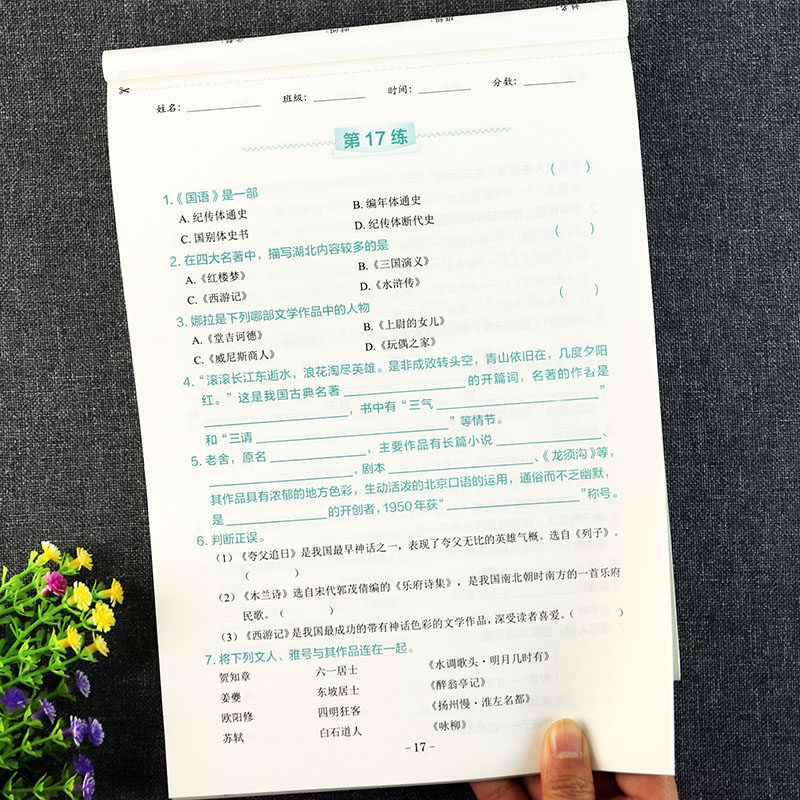 姓名：
班级：
时间：
分数：
第 17 练
1.《国语》是一部 (    )
A. 纪传体通史 B. 编年体通史
C. 国别体史书 D. 纪传体断代史
2. 在四大名著中，描写湖北内容较多的是 (    )
A.《红楼梦》 B.《三国演义》
C.《西游记》 D.《水浒传》
3. 娜拉是下列哪部文学作品中的人物 (    )
A.《堂吉诃德》 B.《上尉的女儿》
C.《威尼斯商人》 D.《玩偶之家》
4. “滚滚长江东逝水，浪花淘尽英雄。是非成败转头空，青山依旧在，几度夕阳
红。”这是我国古典名著____________的开篇词，名著的作者是
____________，书中有“三气____________”
和“三请____________”等情节。
5. 老舍，原名____________，主要作品有长篇小说____________、
____________，剧本____________、《龙须沟》等，
其作品具有浓郁的地方色彩，生动活泼的北京口语的运用，通俗而不乏幽默，
是____________的开创者，1950年获“____________”称号。
6. 判断正误。
（1）《夸父追日》是我国最早神话之一，表现了夸父无比的英雄气概。选自《列子》。
(    )
（2）《木兰诗》选自宋代郭茂倩编的《乐府诗集》，是我国南北朝时南方的一首乐府
民歌。(    )
（3）《西游记》是我国最成功的带有神话色彩的文学作品，深受读者喜爱。(    )
7. 将下列文人、雅号与其作品连在一起。
贺知章 六一居士 《水调歌头·明月几时有》
姜夔 东坡居士 《醉翁亭记》
欧阳修 四明狂客 《扬州慢·淮左名都》
苏轼 白石道人 《咏柳》
- 17 -